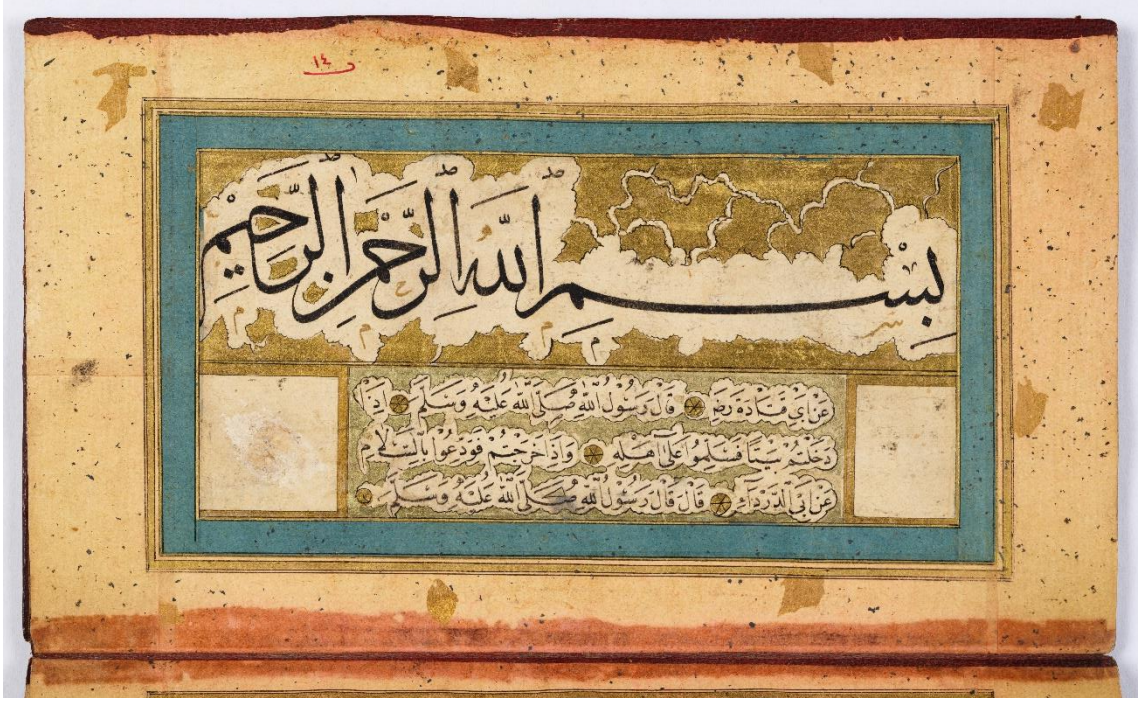 ١٤
بِسْمِ اللّٰهِ الرَّحْمٰنِ الرَّحِيمِ
عَنْ اَبِي قَتَادَةَ رض قَالَ رَسُولُ اللّٰهِ صَلَّى اللّٰهُ عَلَيْهِ وَسَلَّمَ اِذَا
دَخَلْتُمْ بَيْتًا فَسَلِّمُوا عَلَى اَهْلِهِ وَاِذَا خَرَجْتُمْ فَوَدِّعُوا بِالسَّلَامِ
عَنْ اَبِي الدَّرْدَاءِ قَالَ قَالَ رَسُولُ اللّٰهِ صَلَّى اللّٰهُ عَلَيْهِ وَسَلَّمَ